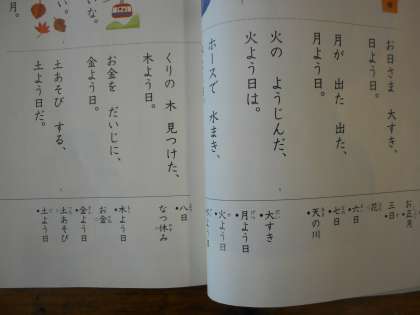 お日さま 大すき、
日よう日。
月が 出た 出た、
月よう日。
火の ようじんだ、
火よう日は。
ホースで 水まき、
くりの 木 見つけた、
木よう日。
お金を だいじに、
金よう日。
土あそび する、
土よう日だ。
月。
お正月
三日
花
六日
七日
天の川
大すき
月よう日
火よう日
八日
なつ休み
木よう日
お金
金よう日
土あそび
土よう日